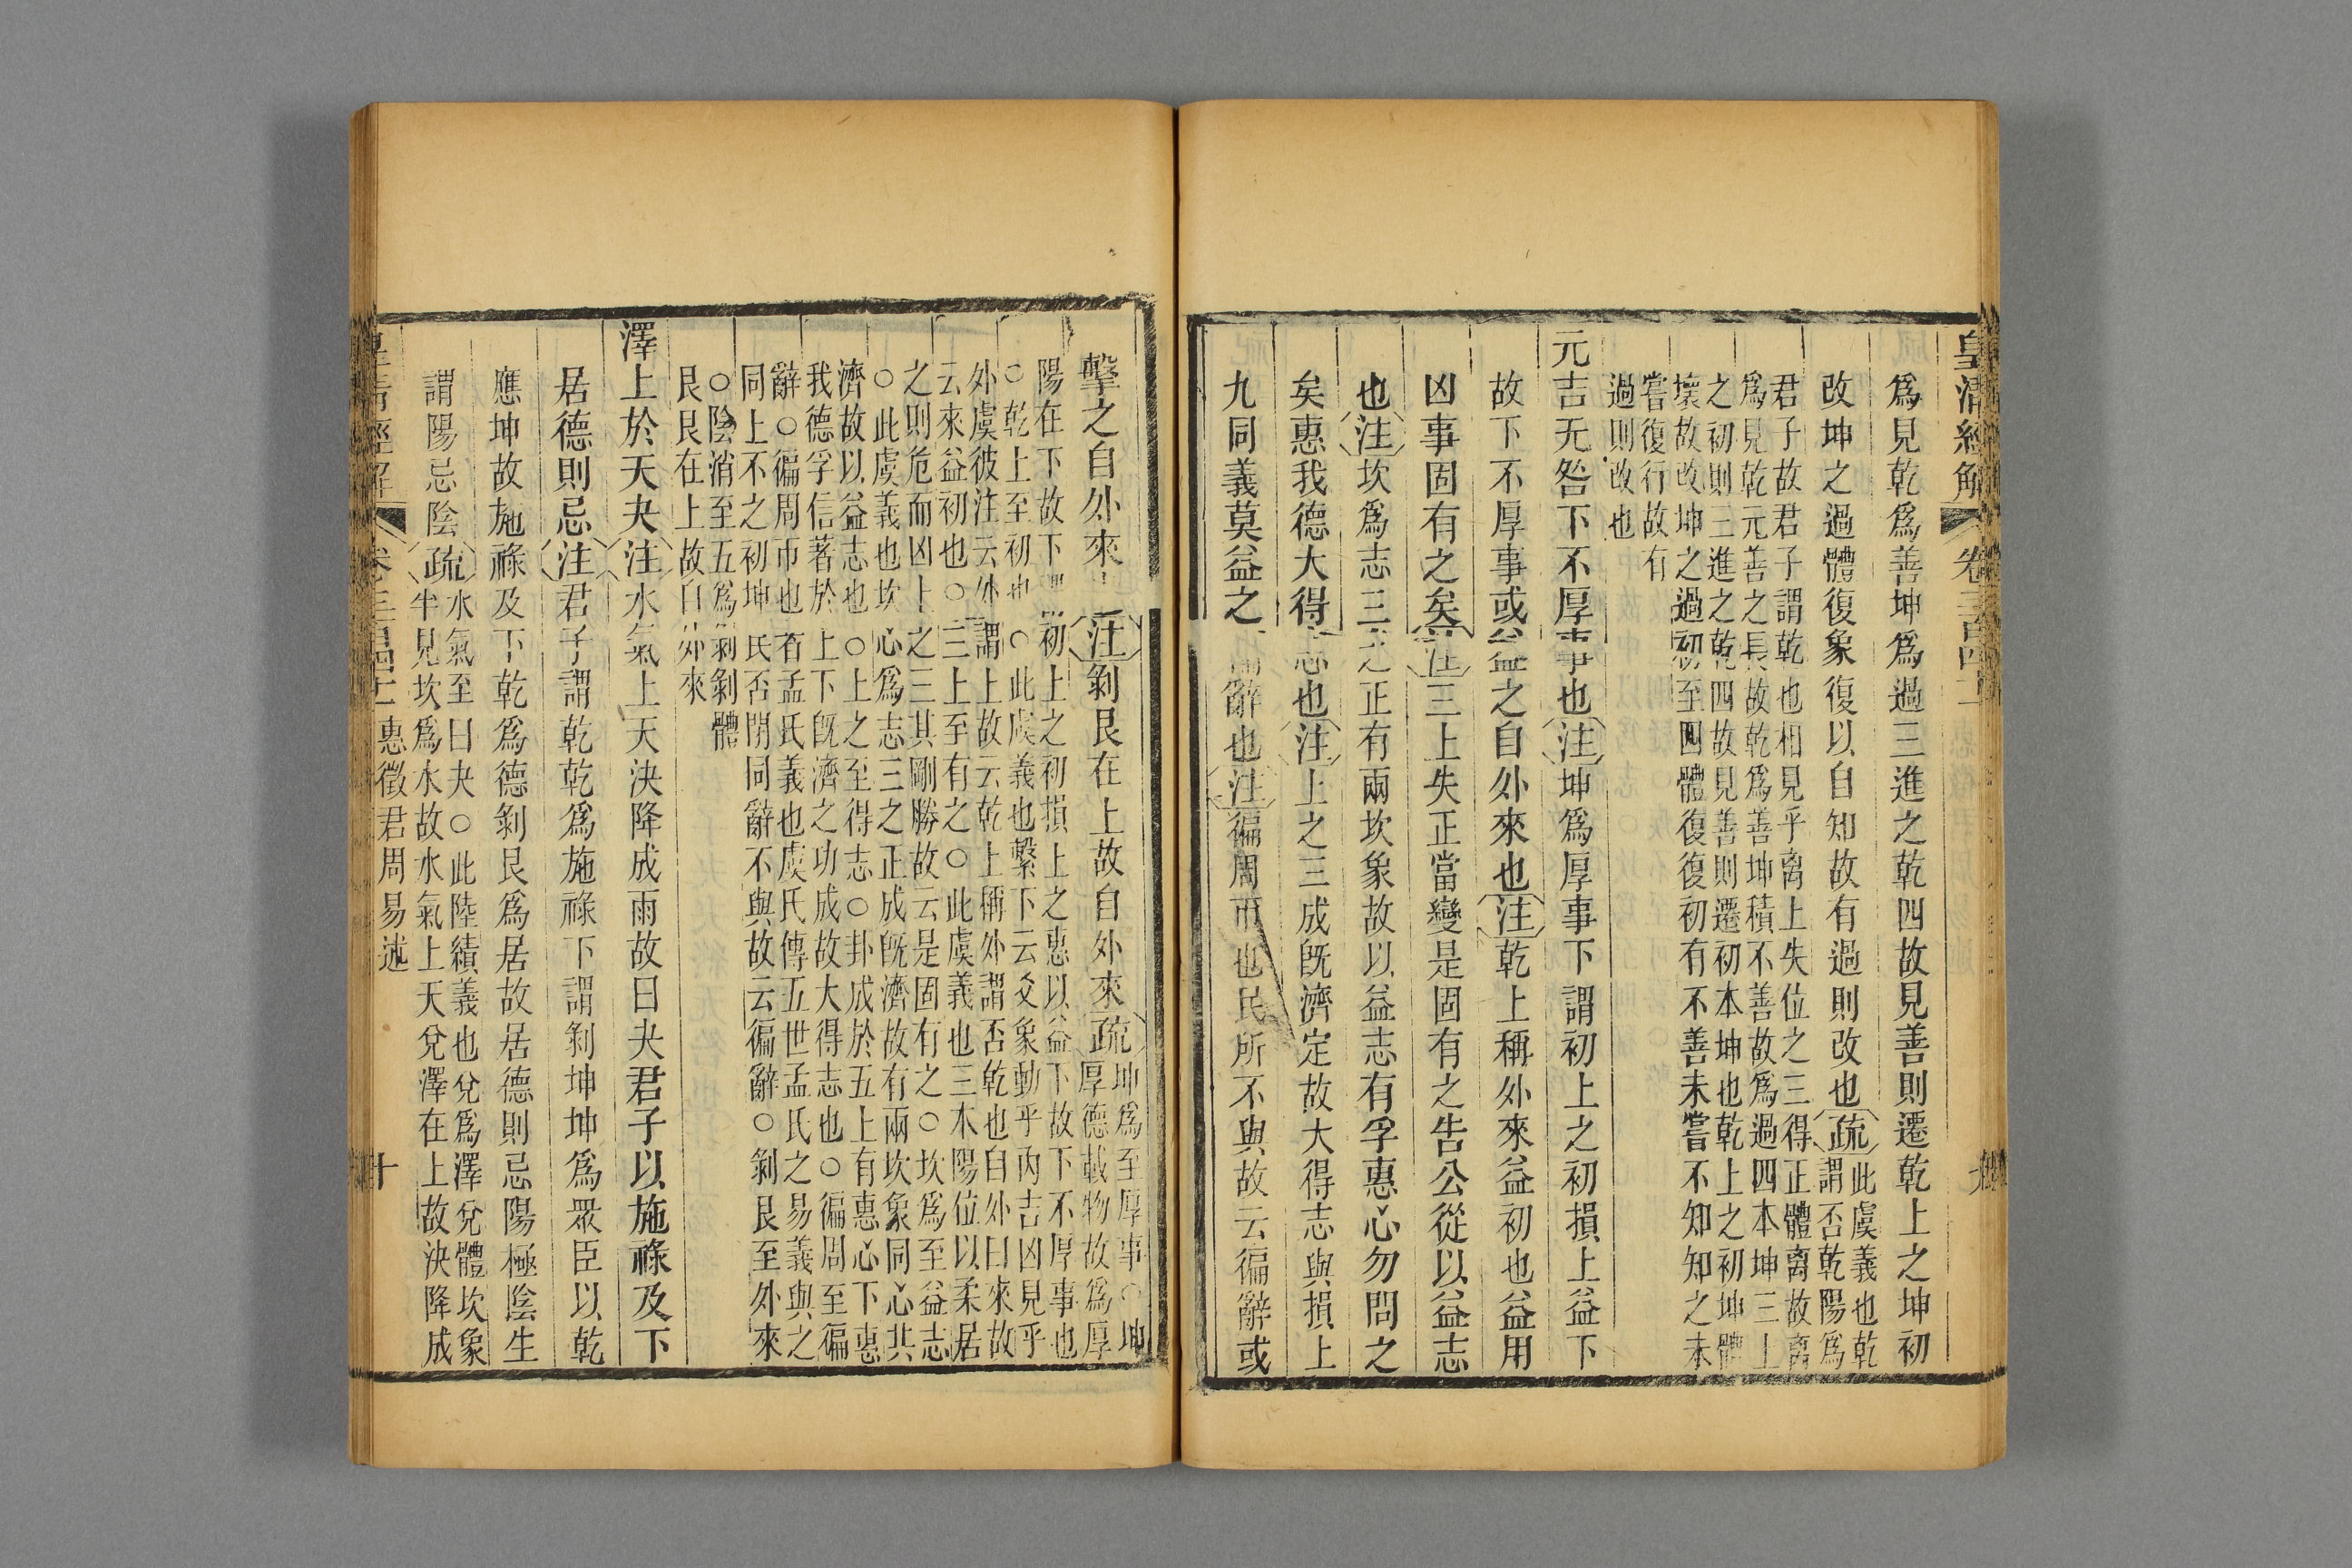 皇清經解 卷三百四十 九
爲見乾爲善坤爲過三進之乾四故見善則遷乾上之坤初
改坤之過體復象復以自知故有過則改也疏
此虞義也乾
謂否乾陽爲
君子故君子謂乾也相見乎离上失位之三得正體离故离
爲見乾元善之長故乾爲善坤積不善故爲過四本坤三上
之初則三進之乾四故見善則遷初本坤也乾上之初坤體
壞故改坤之過初至四體復復初有不善未嘗不知知之未
嘗復行故有
過則改也
元吉无咎下不厚事也注坤爲厚事下謂初上之初損上益下
故下不厚事或益之自外來也注乾上稱外來益初也益用
凶事固有之矣注三上失正當變是固有之告公從以益志
也注坎爲志三之正有兩坎象故以益志有孚惠心勿問之
矣惠我德大得志也注上之三成旣濟定故大得志與損上
九同義莫益之徧辭也注徧周帀也民所不與故云徧辭或
擊之自外來注剝艮在上故自外來疏
坤爲至厚事○坤
厚德載物故爲厚
陽在下故下謂初上之初損上之惠以益下故下不厚事也
○乾上至初也○此虞義也繫下云爻象動乎內吉凶見乎
外虞彼注云外謂上故云乾上稱外謂否乾也自外曰來故
云來益初也○三上至有之○此虞義也三本陽位以柔居
之則危而凶上之三其剛勝故云是固有之○坎爲至益志
○此虞義也坎心爲志三之正成旣濟故有兩坎象同心共
濟故以益志也○上之至得志○卦成於五上有惠心下惠
我德孚信著於上下旣濟之功成故大得志也○徧周至徧
辭○徧周帀也有孟氏義也虞氏傳五世孟氏之易義與之
同上不之初坤民否閉同辭不與故云徧辭○剝艮至外來
○陰消至五爲剝剝體
艮艮在上故自外來
澤上於天夬注水氣上天決降成雨故曰夬君子以施祿及下
居德則忌注君子謂乾乾爲施祿下謂剝坤坤爲眾臣以乾
應坤故施祿及下乾爲德剝艮爲居故居德則忌陽極陰生
謂陽忌陰疏
水氣至曰夬○此陸績義也兌爲澤兌體坎象
半見坎爲水故水氣上天兌澤在上故決降成
皇清經解 惠徵君周易述 十